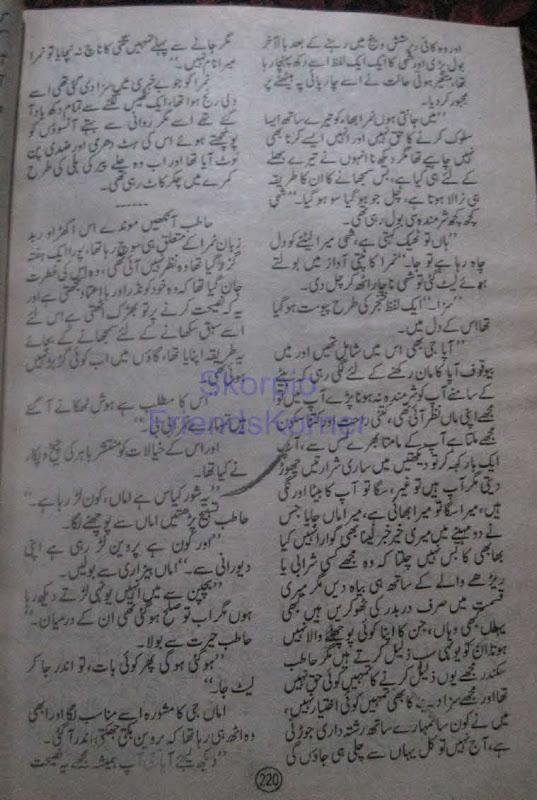 اور وہ کافی دیر شش و پنج میں رہنے کے بعد بالآخر
بول پڑی اور شمی کا ایک ایک لفظ اسے دکھ پہنچا رہا
تھا، متغیر ہوئی حالت نے اسے چارپائی پہ بیٹھنے پر
مجبور کر دیا۔
”میں جانتی ہوں نمرا بھاؤ کو تیرے ساتھ ایسا
سلوک کرنے کا حق نہیں اور انہیں ایسے کرنا بھی
نہیں چاہیے تھا مگر دیکھ نا انہوں نے تیرے بھلے
کے لئے ہی کیا ہے، بس سمجھانے کا ان کا طریقہ
ہی نرالا ہوتا ہے، چل جو ہو گیا سو ہو گیا۔“ شمی
کچھ کچھ شرمندہ سی بول رہی تھی۔
”ہاں تو ٹھیک کہتی ہے، شمی میرا لیٹنے کو دل
چاہ رہا ہے تو جا۔“ نمرا کانپتی آواز میں بولتے
ہوئے لیٹ گئی تو شمی ناچار اٹھ کر چل دی۔
”سزا۔“ ایک لفظ خنجر کی طرح پیوست ہو گیا
تھا اس کے دل میں۔
”آپا جی بھی اس میں شامل تھیں اور میں
بیوقوف آپا کا مان رکھنے کے لئے رکی رہی کہ بیٹے
کے سامنے آپ کو شرمندہ نہ ہونا پڑے آپ میں تو
مجھے اپنی ماں نظر آئی تھی، کتنی راحت اور کتنا سکون
مجھے ملتا ہے آپ کے مامتا بھرے لمس سے، آپ
ایک بار کہہ کر تو دیکھتیں میں ساری شرارتیں چھوڑ
دیتی مگر آپ ہیں تو غیر، سگا تو آپ کا بیٹا اور سگی
ہیں، میرا سگا تو میرا بھائی ہے، میرا ماں جایا جس
نے دو مہینے میں میری خیر خبر لینا بھی گوارا نہیں کیا
بھابھی کا بس نہیں چلتا کہ وہ مجھے کسی شرابی یا
ریڑھے والے کے ساتھ ہی بیاہ دیں مگر میری
قسمت میں صرف در بدر کی ٹھوکریں ہیں کبھی
یہاں کبھی وہاں، جن کا اپنا کوئی پوچھنے والا نہیں
ہوتا ان کو یونہی سب ذلیل کرتے ہیں مگر حاطب
سکندر مجھے یوں ذلیل کرنے کا تمہیں کوئی حق نہیں
تھا اور مجھے سزا دینے کا بھی تمہیں کوئی اختیار نہیں،
میں نے کون سا تمہارے ساتھ رشتہ داری جوڑنی
ہے، آج نہیں تو کل یہاں سے چلی ہی جاؤں گی
مگر جانے سے پہلے تمہیں تگنی کا ناچ نہ نچایا تو نمرا
میرا نام نہیں۔“
نمرا کو جو بے خبری میں سزا دی گئی تھی اسے
دلی رنج ہوا تھا، ایک ٹھیس لگنے سے تمام دکھ یاد آ
گئے تھے اسے مگر روانی سے بہتے آنسوؤں کو
پونچھتے ہوئے اس کی ہٹ دھرمی اور ضدی پن
لوٹ آیا تھا اور اب وہ جلے پیر کی بلی کی طرح
کمرے میں چکر کاٹ رہی تھی۔
------
حاطب آنکھیں موندے اس اکھڑ اور بد
زبان نمرا کے متعلق ہی سوچ رہا تھا، پورا ایک ہفتہ
گزر گیا تھا وہ نظر نہیں آئی تھی، وہ اس کی فطرت
جان گیا تھا کہ وہ خود کو نڈر اور بااعتماد سمجھتی ہے اور
یہ کہ نصیحت کرنے پر تو بھڑک اٹھتی ہے اس لئے
اسے سبق سکھانے کے لئے سمجھانے کے بجائے
یہ طریقہ اپنایا تھا، گاؤں میں اب کوئی گڑبڑ نہیں
ہوئی تھی۔
”اس کا مطلب ہے ہوش ٹھکانے آ گئے
ہیں تمہارے نمرا بی بی۔“
اور اس کے خیالات کو منتشر باہر کی چیخ و پکار
نے کیا تھا۔
”یہ شور کیا ہے اماں، کون لڑ رہا ہے۔“
حاطب تسبیح پڑھتیں اماں سے پوچھنے لگا۔
”اور کون ہے پروین لڑ رہی ہے اپنی
دیورانی سے۔“ اماں بیزاری سے بولیں۔
”بچپن سے میں انہیں یونہی لڑتے دیکھ رہا
ہوں مگر اب تو صلح ہو گئی تھی ان کے درمیان۔“
حاطب حیرت سے بولا۔
”ہو گئی ہو گی پھر کوئی بات، تو اندر جا کر
لیٹ جا۔“
اماں جی کا مشورہ اسے مناسب لگا اور ابھی
وہ اٹھ ہی رہا تھا کہ پروین بکتی جھکتی اندر آ گئی۔
”دیکھ لیجئے آپا جی آپ ہمیشہ مجھے یہ نصیحت
Skorpio
FriendsKorner
220